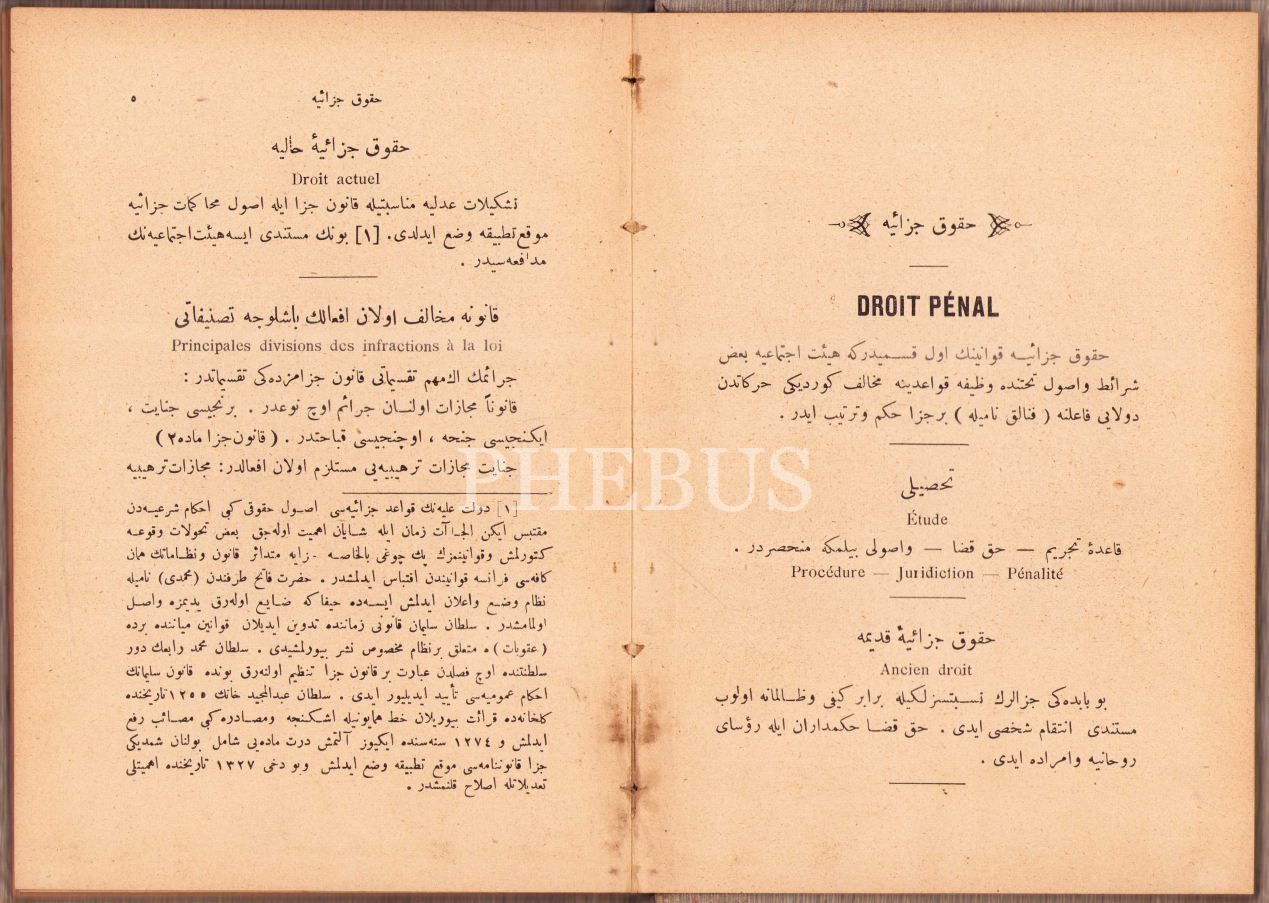 حقوق جزائيه
DROIT PÉNAL
حقوق جزائيـه قوانينك اول قسـميدركه هيئت اجتماعيه بعض
شرائط واصول تحتنده وظيفه قواعدينه مخالف كورديكى حركاتدن
دولايى فاعلنه ( فنالق ناميله ) برجزا حكم وترتيب ايدر .
تحصيلى
Étude
قاعدۀ تجريم — حق قضا — واصولى بيلمكه منحصردر .
Procédure — Juridiction — Pénalité
حقوق جزائيۀ قديمه
Ancien droit
بو بابده‌كى جزالرك نسـبتسزلكيله برابر كيفى وظـالمانه اولوب
مستندى انتقام شخصى ايدى . حق قضـا حكمداران ايله رؤساى
روحانيه وامراده ايدى .
حقوق جزائيه
٥
حقوق جزائيۀ حاليه
Droit actuel
تشكيلات عدليه مناسبتيله قانون جزا ايله اصول محاكمات جزائيه
موقع تطبيقه وضع ايدلدى. [١] بونك مستندى ايسه هيئت اجتماعيه‌نك
مدافعه‌سيدر .
قانونه مخالف اولان افعالك باشلوجه تصنيفاتى
Principales divisions des infractions à la loi
جرائمك اك مهم تقسيماتى قانون جزامزده‌كى تقسيماتدر :
قانوناً مجازات اولنـان جرائم اوچ نوعدر . برنجيسى جنايت ،
ايكنجيسى جنحه ، اوچنجيسى قباحتدر . ( قانون جزا ماده ٢ )
جنايت مجازات ترهيبيه‌يى مستلزم اولان افعالدر: مجازات ترهيبيه
[١] دولت عليه‌نك قواعد جزائيه‌سى اصـول حقوقى كبى احكام شرعيـه‌دن
مقتبس ايكن الجاآت زمان ايله شـايان اهميت اوله‌جق بعض تحولات وقوعـه
كتورلمش وقوانينمزك پك چوغى بالخاصـه جزايه متدائر قانون ونظـاماتك همان
كافه‌سى فرانسه قوانيندن اقتباس ايدلمشدر . حضرت فاتح طرفندن (محمدى) ناميله
نظام وضـع واعلان ايدلمش ايسـه‌ده حيفا كه ضـايع اوله‌رق يديمزه واصـل
اولمامشدر . سلطان سليمان قانونى زماننده تدوين ايديلان قوانين مياننده برده
( عقوبات ) ه متعلق برنظام مخصوص نشر بيورلمشيدى . سلطان محمد رابعك دور
سلطنتنده اوچ فصلدن عبارت برقانون جزا تنظيم اولنه‌رق بونده قانون سليمانك
احكام عموميه‌سى تأييد ايديليور ايدى . سلطان عبدالمجيد خانك ١٢٥٥ تاريخنده
كلخانه‌ده قرائت بيوريلان خط همايونيله اشكنجه ومصادره كبى مصائب رفع
ايدلمش و ١٢٧٤ سنه‌سنده ايكيوز آلتمش درت ماده‌يى شامل بولنان شمديكى
جزا قانوننامه‌سى موقع تطبيقه وضع ايدلمش وبو دخى ١٣٢٧ تاريخنده اهميتلى
تعديلاتله اصلاح قلنمشدر .
PHEBUS